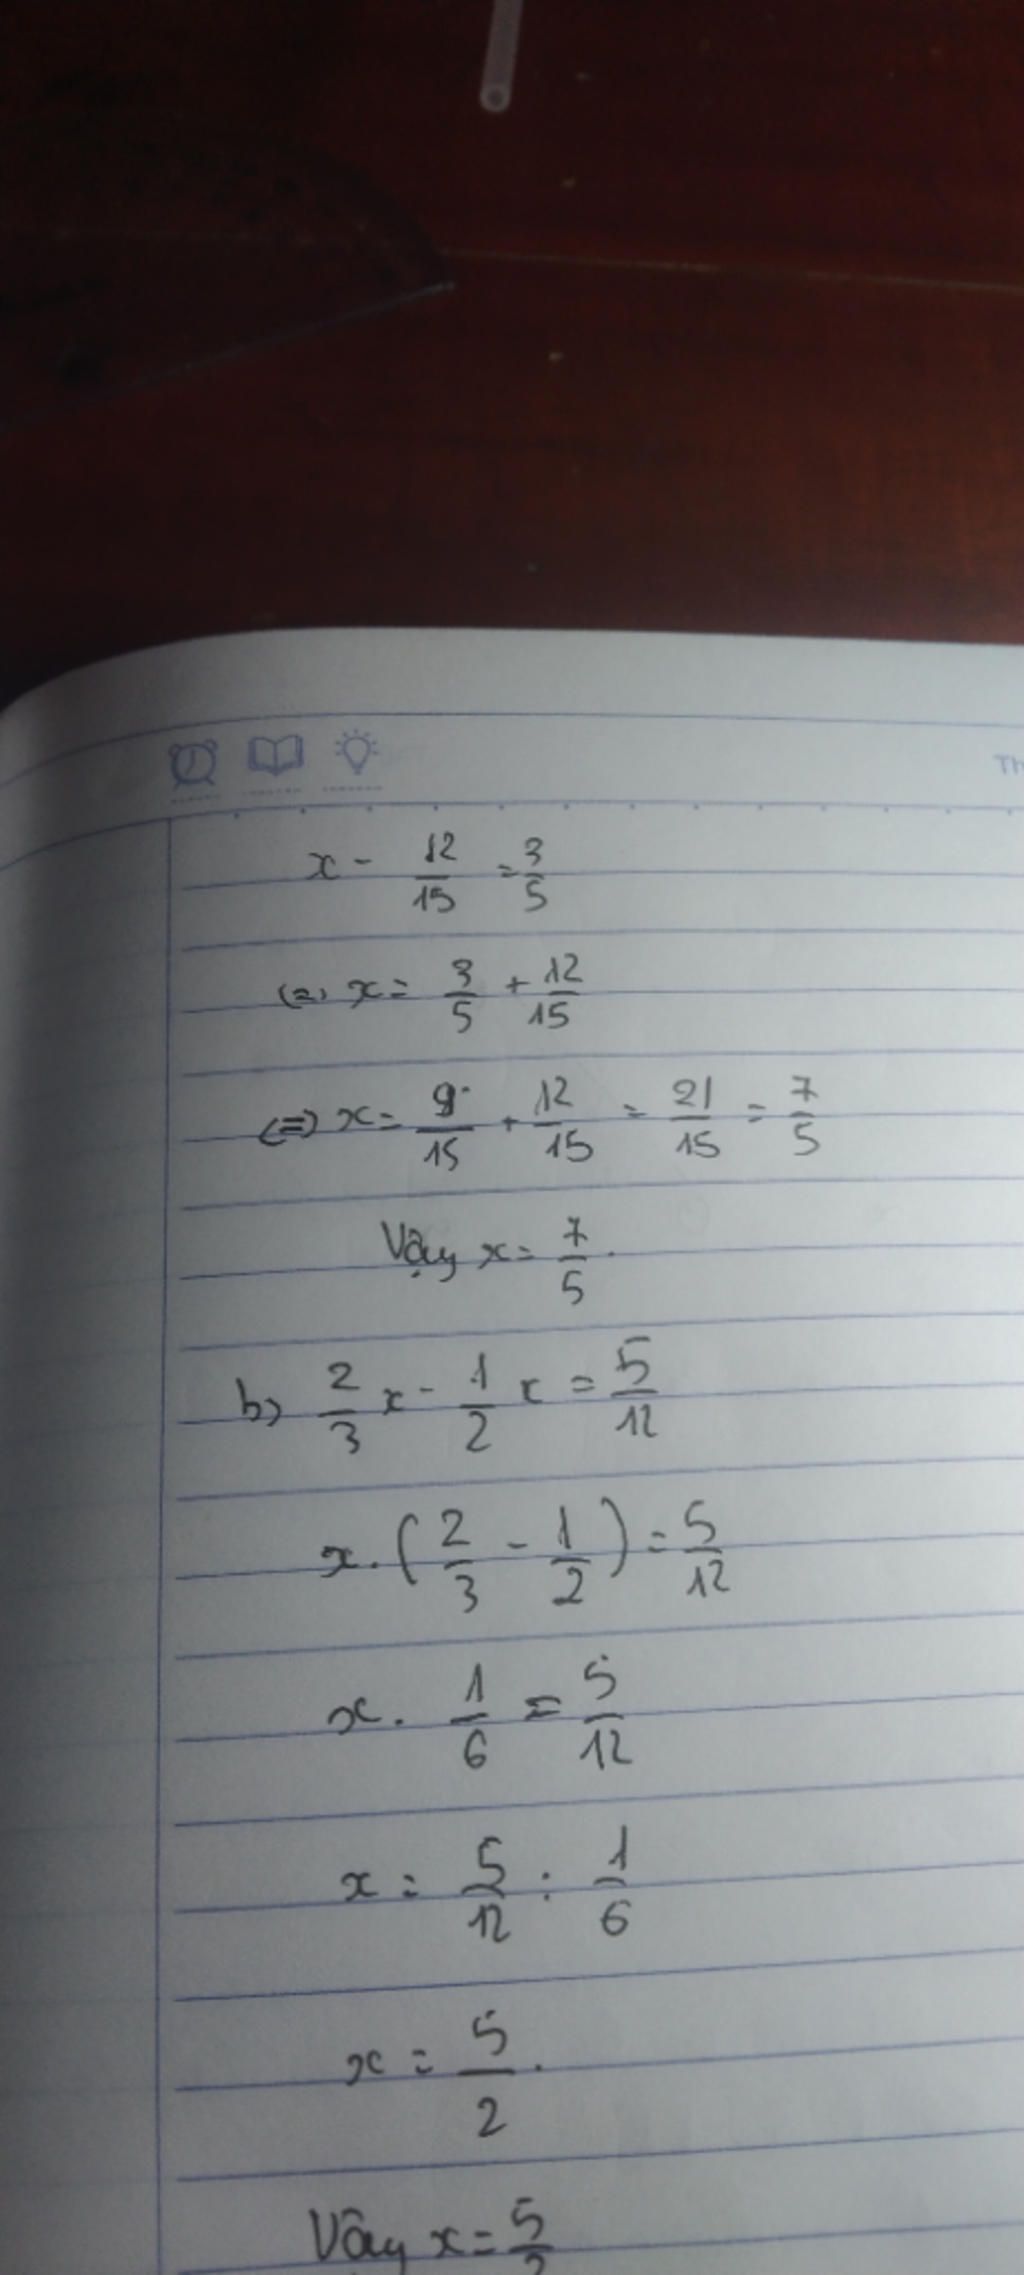 Th
x - 12/15 = 3/5
(=) x = 3/5 + 12/15
(=) x = 9/15 + 12/15 = 21/15 = 7/5
Vậy x = 7/5.
b) 2/3 x - 1/2 x = 5/12
x. (2/3 - 1/2) = 5/12
x. 1/6 = 5/12
x = 5/12 : 1/6
x = 5/2.
Vậy x = 5/2